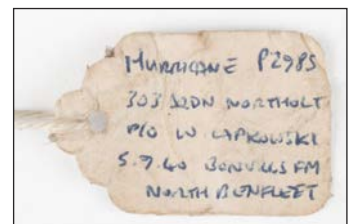 HURRICANE P2985
303 SQDN NORTHOLT
P/O W LAPKOWSKI
5.9.40 BONVILLS FM
NORTH BENFLEET